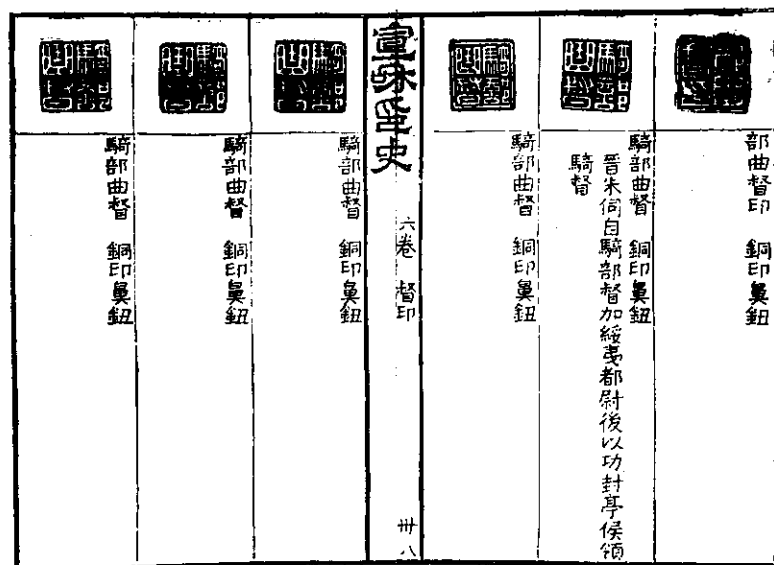 部曲督印　銅印鼻鈕
騎部曲督　銅印鼻鈕
晉朱伺自騎部督加綏夷都尉後以功封亭侯領
騎督
騎部曲督　銅印鼻鈕
宣和印史　六卷　督印　卅八
騎部曲督　銅印鼻鈕
騎部曲督　銅印鼻鈕
騎部曲督　銅印鼻鈕